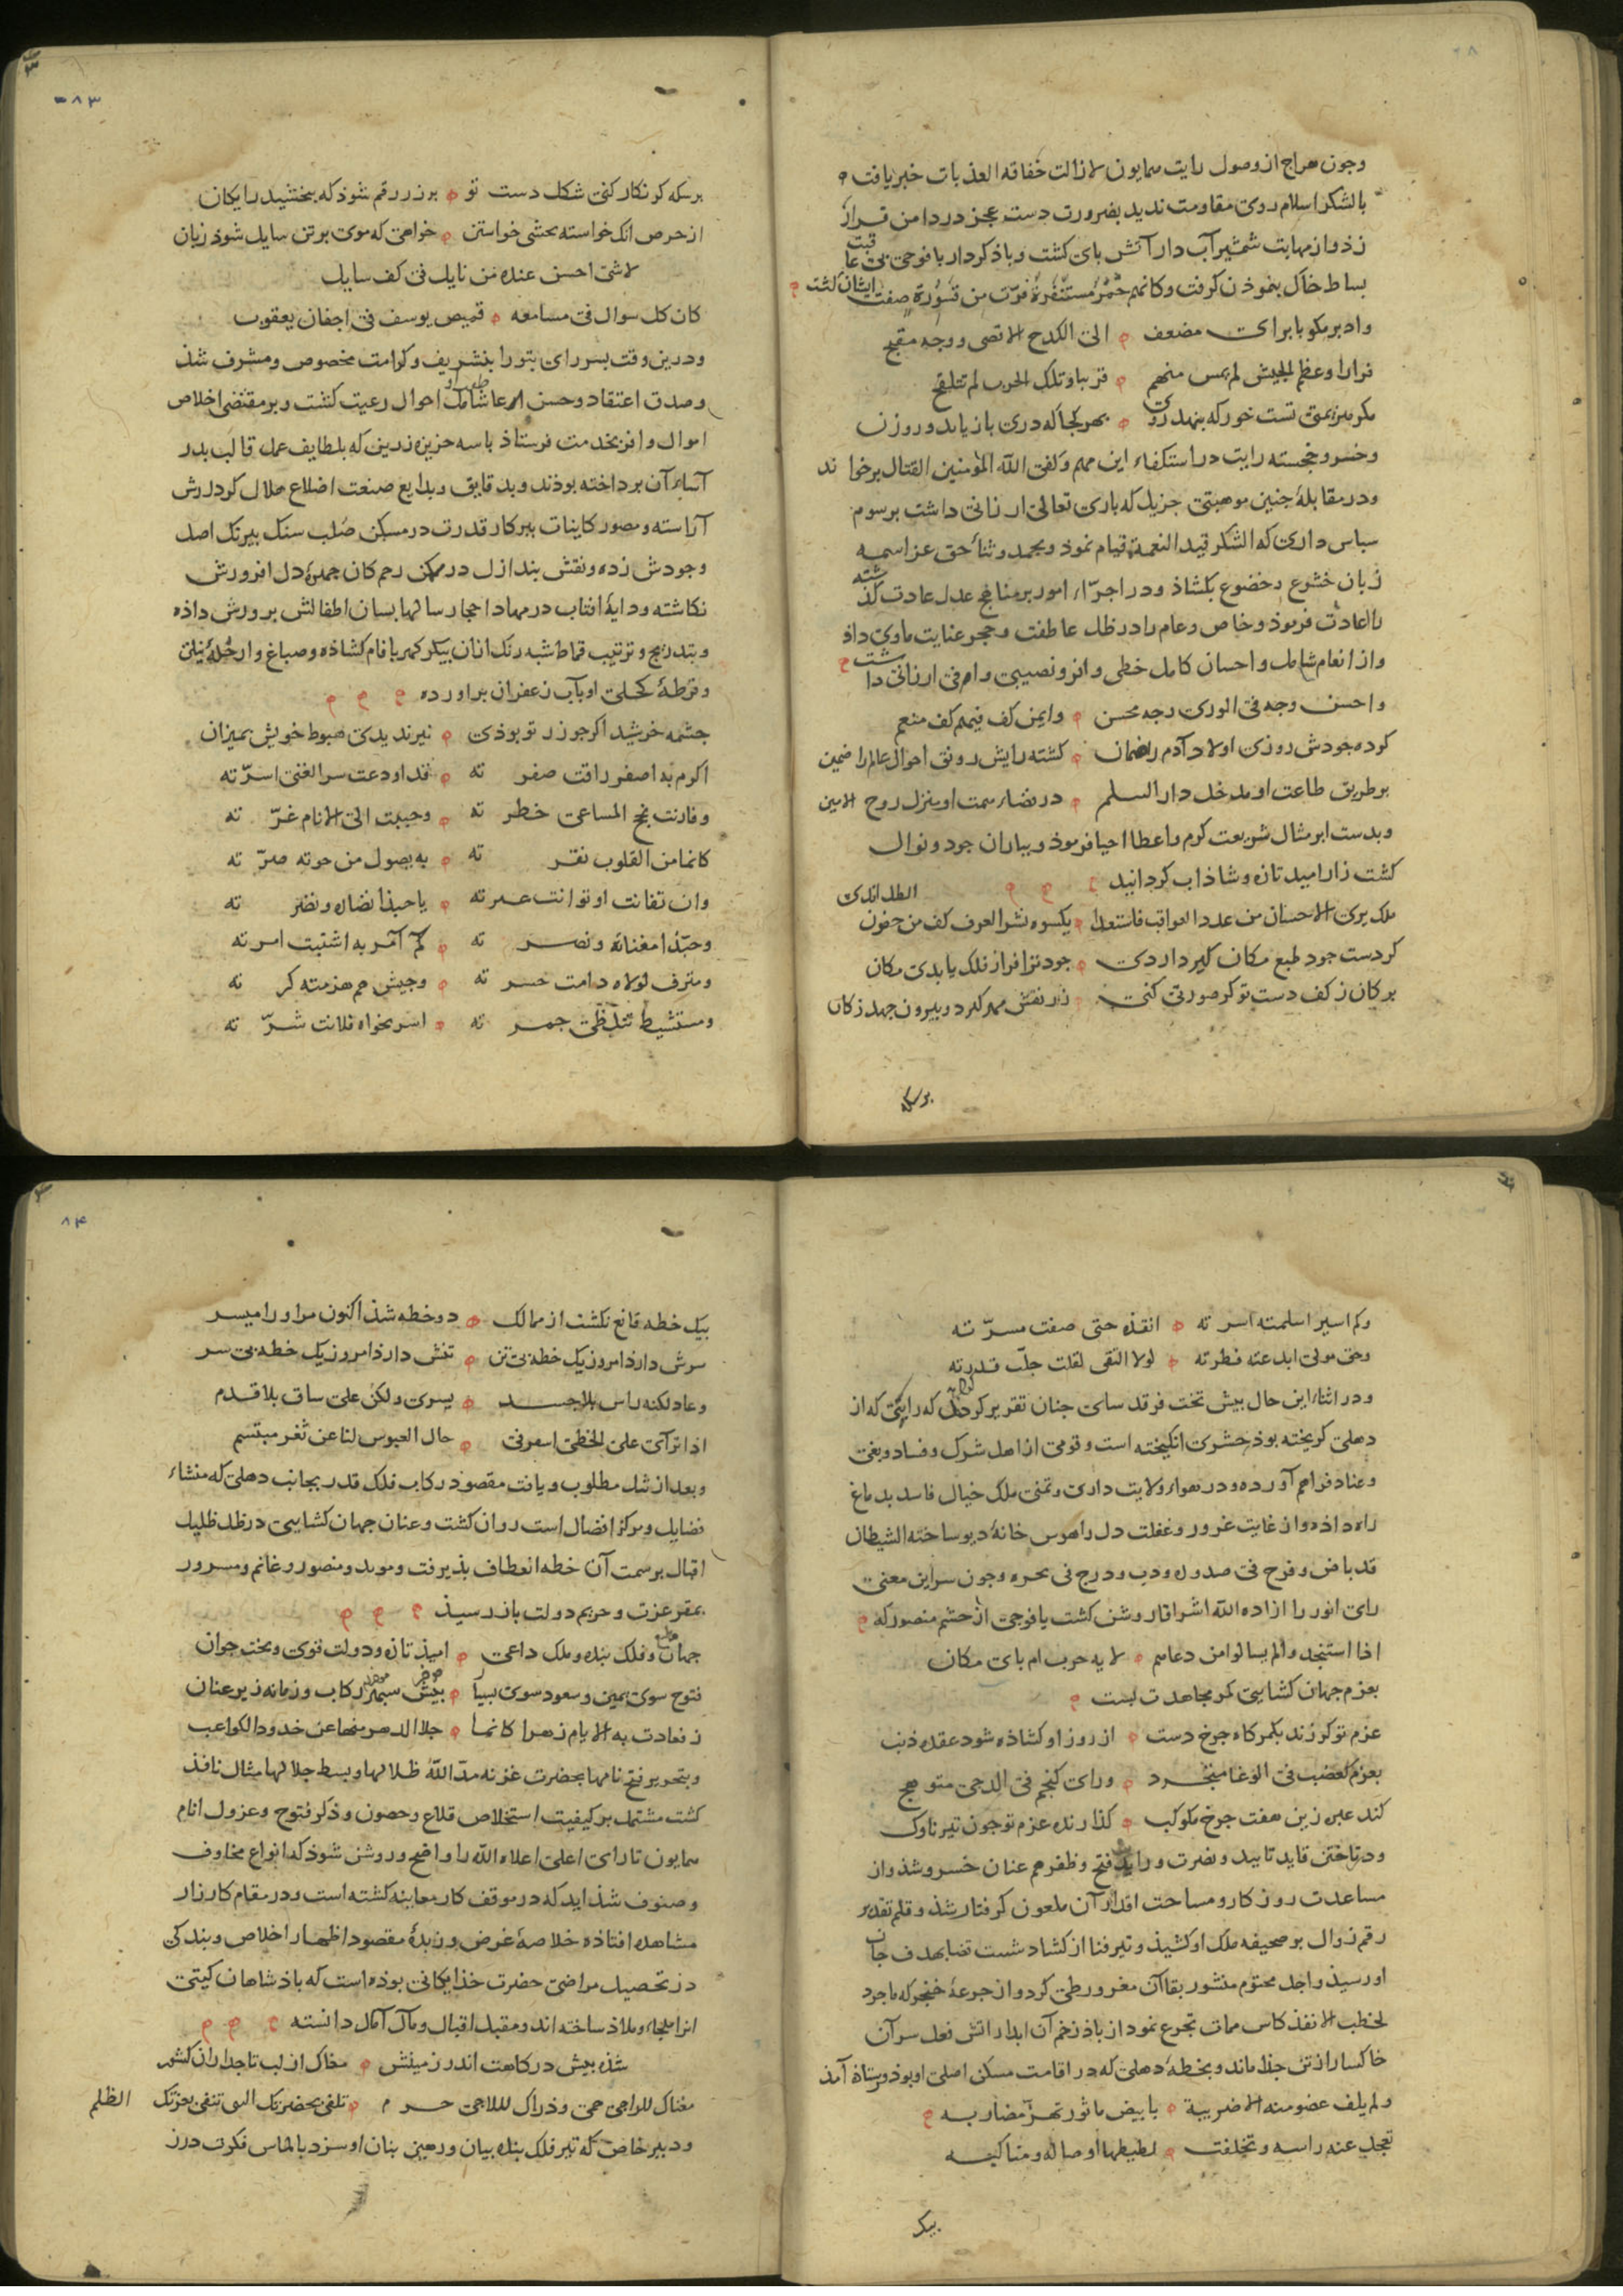 وجون هراج از وصول رایت همایون لا زالت خفاقه العذبات خبر یافت
بالشکر اسلام روی مقاومت ندید بضرورت دست عجز در دامن فرار
زد و از مهابت شمشیر آب دار آتش بای کشت و باذ کردار با فوجی بی عاقبت
بساط خاک بیموذن کرفت و کانهم حمر مستنفرة فرت من قسورة صفت ایشان کشت
وادبر مکو بابرای مضعف الی الکدح الاقصی ووجه مقبح
فرارا وعظم الجیش لم یمس منهم قریبا وتلک الحرب لم تتلقح
مکر هزیمتی تست خور که بنهد روی بهر کجا که دری باز یابد و روزن
وخسرو خجسته رایت در استکفاء این مهم وکفی الله المؤمنین القتال برخواند
ودر مقابلهٔ جنین موهبتی جزیل که باری تعالی ارزانی داشت برسوم
سباس داری که الشکر قید النعمة قیام نموذ و بحمد و ثناء حق عز اسمه
زبان خشوع و خضوع بکشاذ ودر اجراء امور بر مناهج عدل عادت کذشته
را اعادت فرموذ وخاص وعام را در ظل عاطفت وحجر عنایت ماوی داذ
واز انعام شامل و احسان کامل حظی وافر و نصیبی وافی ارزانی داشت
واحسن وجه فی الوری وجه محسن وایمن کف فیهم کف منعم
کرده جودش روزی اولاد آدم را ضمان کشته رایش رونق احوال عالم را ضمین
بر طریق طاعت او مدخل دار السلم در فضاء همت او منزل روح الامین
وبدست ابر مثال شریعت کرم واعطا احیا فرموذ و بباران جود و نوال
کشت زار امید تازه و شاذاب کردانید
ملک یری الاحسان من عدد العواقب فاستعدا یکسوه نشر العرف کف من جفون الطل اندی
کر دست جود طبع مکان کیر داردی جود ترا فراز فلک یابدی مکان
بر کان ز کف دست تو کر صورتی کنی زر نقش مهر کیرد و بیرون جهد ز کان
بر سکه
٨٣
بر سکه کر نکار کنی شکل دست تو بر زر رقم شوذ که ببخشید رایکان
از حرص انک خواسته بخشی خواستن خواهی که موی بر تن سایل شود زبان
لا شی احسن عنده من نایل فی کف سایل
کان کل سوال فی مسامعه قمیص یوسف فی اجفان یعقوب
ودرین وقت بسر رای بتورا بتشریف و کرامت مخصوص ومشرف شذ
وصدق اعتقاد وحسن ارعا شامل احوال رعیت کشت و بر مقتضی اخلاص
اموال وافر بخدمت فرستاذ با سه خربزه زرین که بلطایف عمل قالب بدر
آساء آن برداخته بوذند وبدقایق وبدایع صنعت اضلاع هلال کردارش
آراسته ومصور کاینات ببرکار قدرت در مسکن صلب سنک بیرنک اصل
وجودش زده ونقش بند ازل در ممکن رحم کان جهرهٔ دل افروزش
نکاشته ودایهٔ افتاب در مهاد احجار سالها بسان اطفالش برورش داذه
وبتدریج وترتیب قماط شبه رنک از آن بیکر کهربا فام کشاذه وصباغ وار حلهٔ نیلی
وقرطهٔ کحلی او بآب زعفران براورده
جشمه خرشید اکر جو زر تو بوذی نیز ندیدی هبوط خویش بمیزان
اکرم به اصفر راقت صفرته قد اودعت سر الغنی اسرّته
وقارنت نجح المساعی خطرته وحببت الی الانام غرّته
کانما من القلوب نقرته به یصول من حوته صرّته
وان تفانت او توانت عترته یا حبذا نضاره ونضرته
وحبّذا مغناته ونصرته کم آمر به استتبت امرته
ومترف لولاه دامت حسرته وجیش هم هزمته کرته
ومستشیط تتلظی جمرته اسر نجواه فلانت شرّته
وکم اسیر اسلمته اسرته انقذه حتی صفت مسرّته
وحق مولی ابدعته فطرته لولا التقی لقلت جلّت قدرته
ودر اثناء این حال بیش تخت فرقد سای جنان تقریر کردند که رایکی که از
دهلی کریخته بوذ حشری انکیخته است وقومی از اهل شرک وفساد وبغی
وعناد فراهم آورده ودر هواء ولایت داری وتمنی ملک خیال فاسد بدماغ
راه داذه واز غایت غرور وغفلت دل را هوس خانهٔ دیو ساخته الشیطان
قد باض وفرخ فی صدوره ودب ودرج فی حجره وجون سر این معنی
رای انور را زاده الله اشراقا روشن کشت با فوجی از حشم منصور که
اذا استنجدوا لم یسالوا من دعاهم لایه حرب ام بای مکان
بعزم جهان کشایی کمر مجاهدت ببست
عزم تو کر زند بکمرکاه جرخ دست از روز او کشاذه شود عقده ذنب
بعزم کعضب فی الوغا متجرد ورای کنجم فی الدجی متوهج
کند عبره زین هفت جرخ مکوکب کذارنده عزم تو جون تیر ناوک
ودر تاختن قاید تایید ونصرت و راید فتح وظفر هم عنان خسرو شذ واز
مساعدت روزکار ومساحت اقدار آن ملعون کرفتار شذ وقلم تقدیر
رقم زوال بر صحیفه ملک او کشیذ وتیر فنا از کشاد شست قضا بهدف جان
او رسیذ واجل محتوم منشور بقا آن مغرور طی کرد واز جرعهٔ خنجر که ماجرد
لخطب الا نفذ کاس ممات تجرع نمود از باذ زخم آن ابدار اتش فعل سر آن
خاکسار از تن جذا ماند وبخطهٔ دهلی که در اقامت مسکن اصلی او بوذ فرستاذه آمذ
ولم یلف عضو منه الا ضریبة بابیض ماثور تهز مضاربه
تعجل عنه راسه وتخلفت لطیطها اوصاله ومناکبه
بیک
٨۴
بیک خطه قانع نکشت از ممالک دو خطه شذ اکنون مر او را میسر
سرش دارذ امروز یک خطه بی تن تنش دارذ امروز یک خطه بی سر
وعاد لکنه راس بلا جسد یسری ولکن علی ساق بلا قدم
اذا ترآی علی الخطی اسفر فی حال العبوس لنا عن ثغر مبتسم
وبعد از نیل مطلوب ویافت مقصوذ رکاب فلک قدر بجانب دهلی که منشاء
فضایل ومرکز افضال است روان کشت وعنان جهان کشایی در ظل ظلیل
اقبال بر سمت آن خطه انعطاف بذیرفت وموید ومنصور وغانم ومسرور
بمقر عزت وحریم دولت باز رسیذ
جهان وفلک بنده وملک داعی امیذ تازه ودولت قوی وبخت جوان
فتوح سوی یمین وسعود سوی یسار بیش سپهر رکاب وزمانه زیر عنان
فعادت به الایام زهرا کانما جلا الدهر منها عن خدود الکواعب
وبتحریر فتح نامها بحضرت غزنه مدّ الله ظلالها وبسط جلالها مثال نافذ
کشت مشتمل بر کیفیت استخلاص قلاع وحصون وذکر فتوح وعزول اتام
همایون تا رای اعلی اعلاه الله را واضح وروشن شوذ که انواع مخاوف
وصنوف شذاید که در موقف کار معاینه کشته است ودر مقام کارزار
مشاهده افتاذه خلاصهٔ غرض وزبدهٔ مقصود اظهار اخلاص وبندکی
در تحصیل مراضی حضرت خذایکانی بوده است که باذشاهان کیتی
انرا ملجاء وملاذ ساخته اند ومقبل اقبال ومآل آمال دانسته
شذه بیش درکاهت اندر زمینش مغاک از لب تاجداران کشور
مغناک للراجی حمی وذراک لللاجی حرم تلقی بحضرتک المنی تنفی بعزتک الظلم
ودبیر خاص که تیر فلک بنده بیان ورهین بنان او سزد بالماس فکرت درر